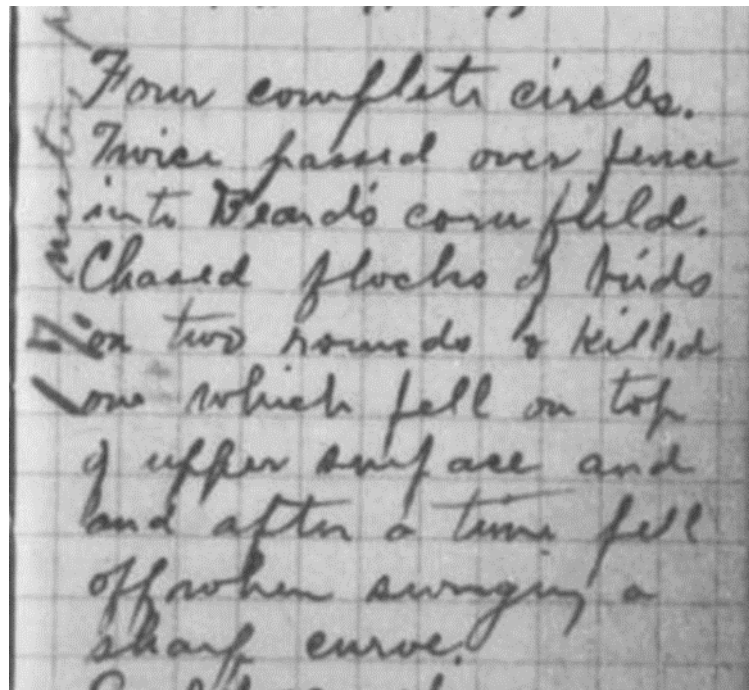 Four complete circles.
Twice passed over fence
into Beard's cornfield.
Chased flocks of birds
on two rounds & killed
one which fell on top
of upper surface and
and after a time fell
off when swinging a
sharp curve.